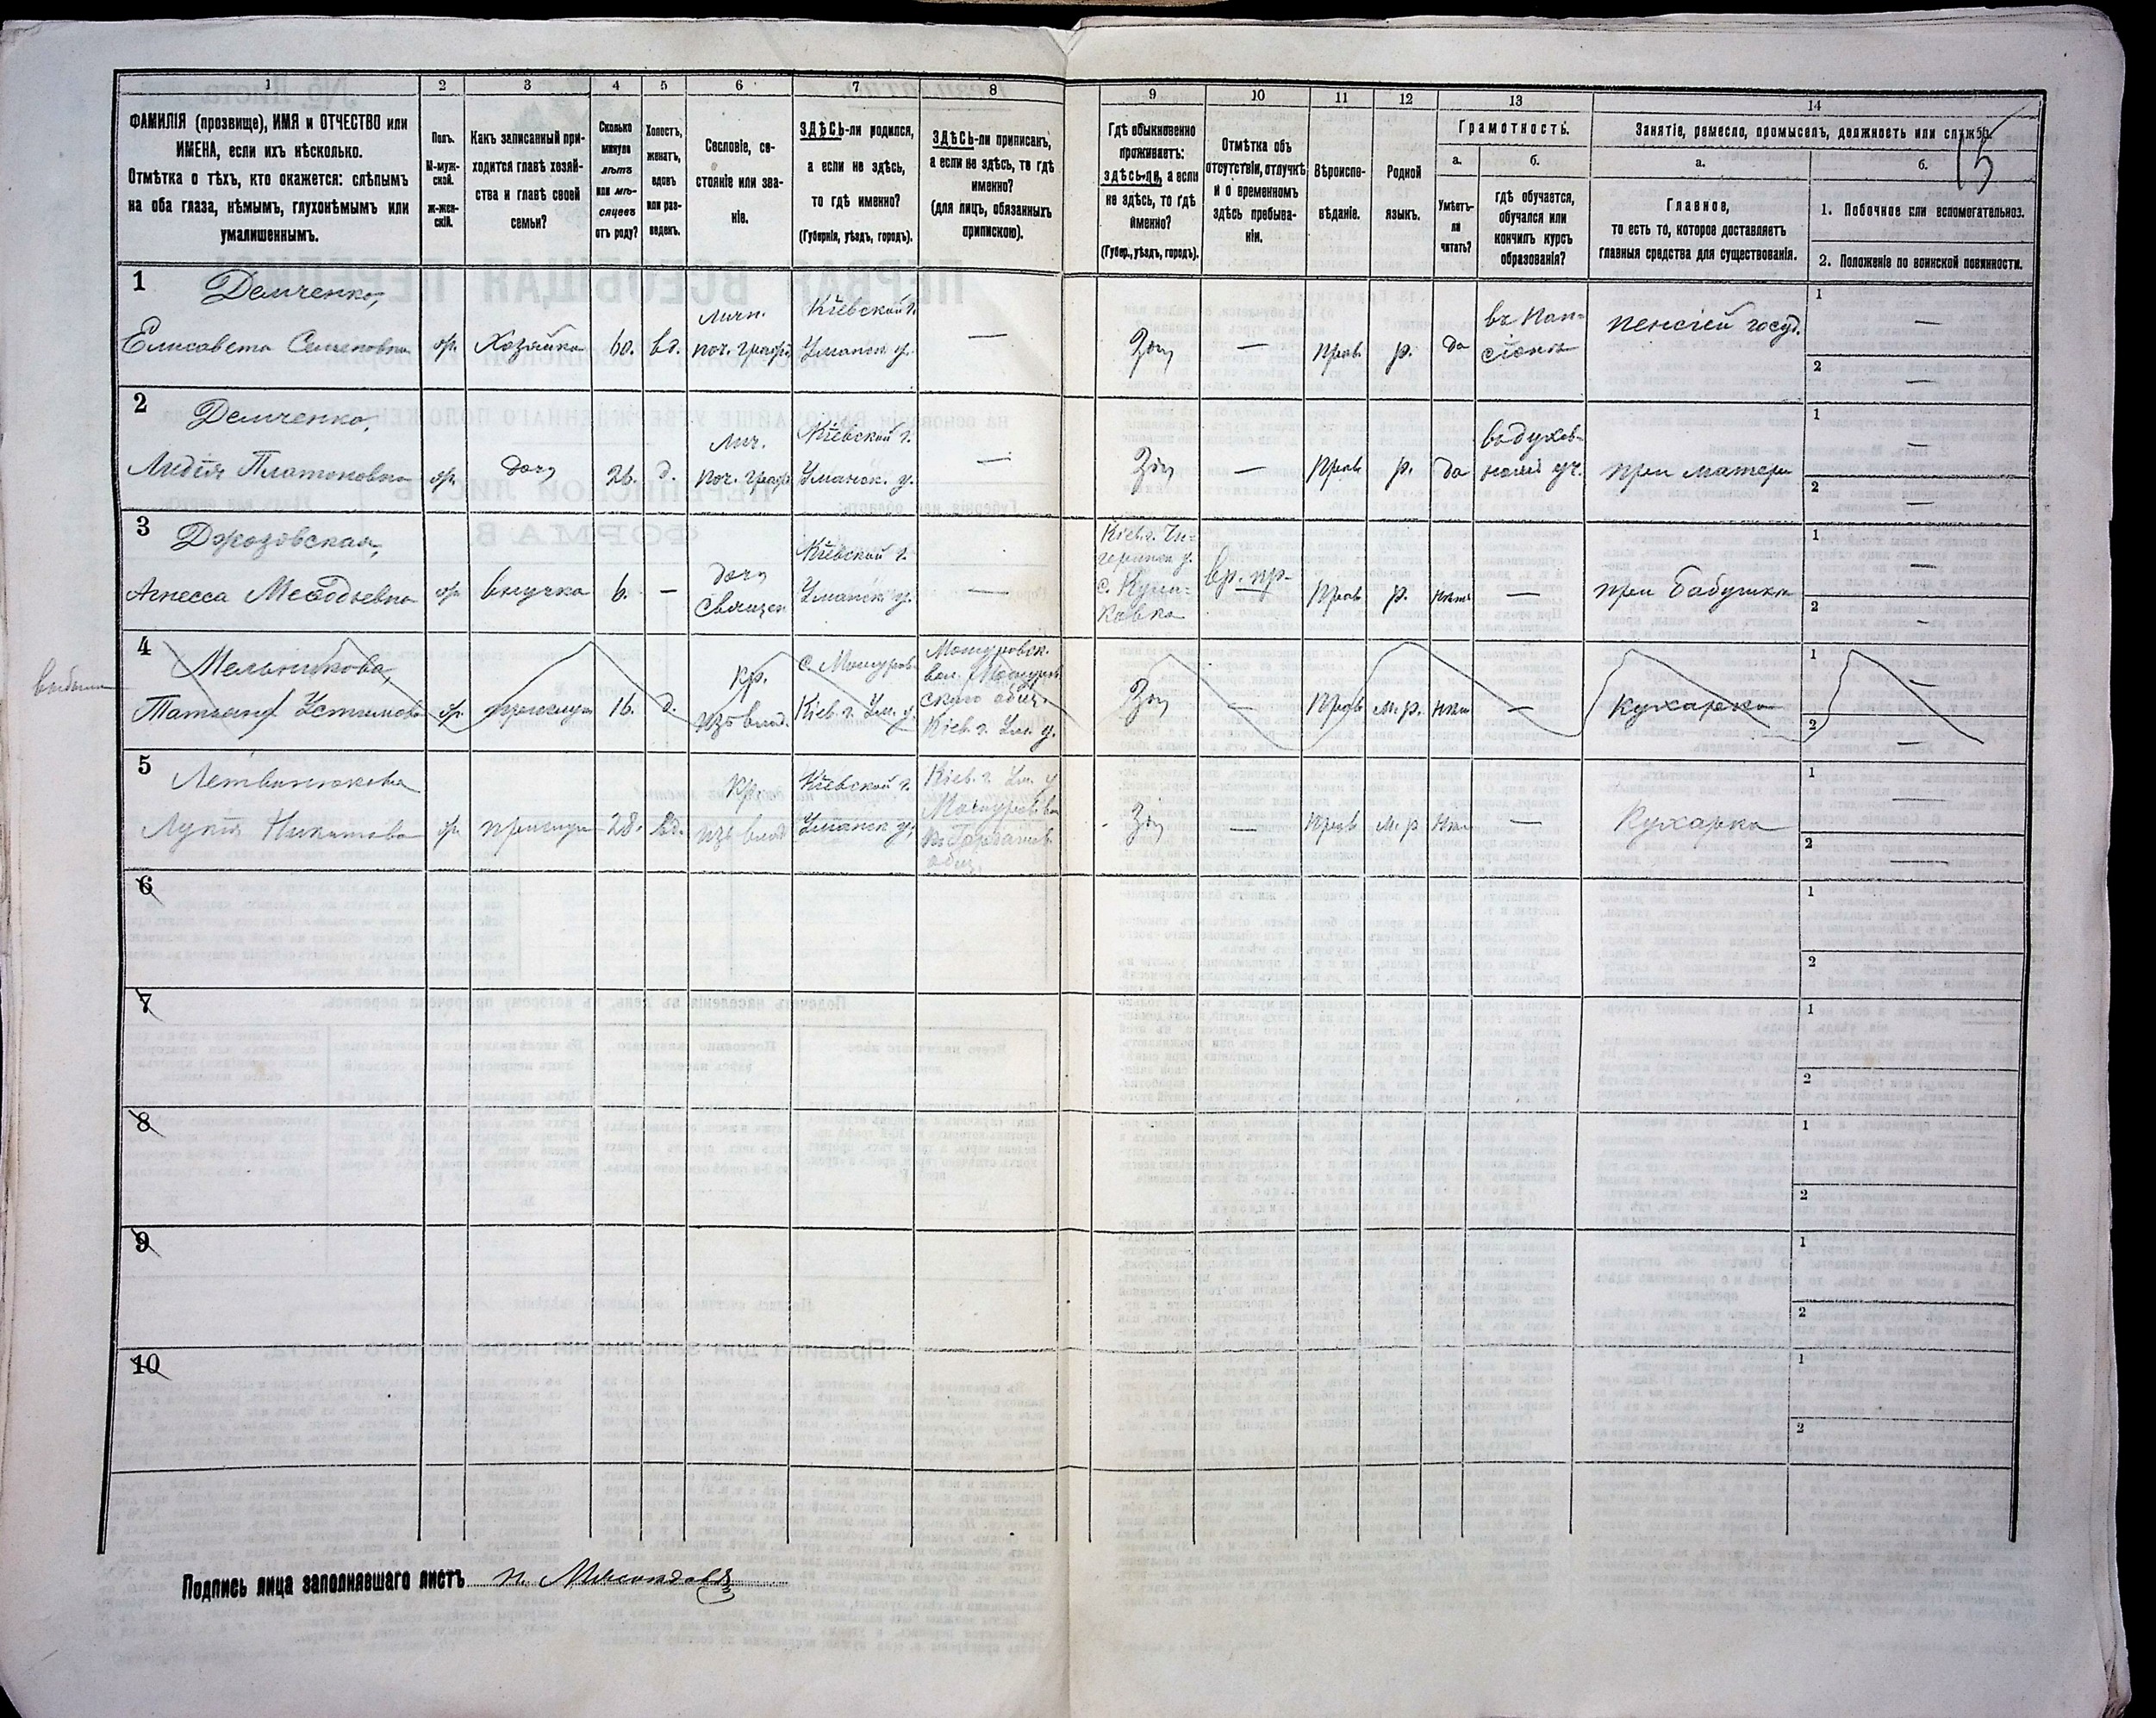 15
1 2 3 4 5 6 7 8 9 10 11 12 13 14
ФАМИЛІЯ (прозвище), ИМЯ и ОТЧЕСТВО или
ИМЕНА, если ихъ нѣсколько.
Отмѣтка о тѣхъ, кто окажется: слѣпымъ
на оба глаза, нѣмымъ, глухонѣмымъ или
умалишеннымъ.
Полъ.
М-муж-
ской.
ж-жен-
скій.
Какъ записанный при-
ходится главѣ хозяй-
ства и главѣ своей
семьи?
Сколько
минуло
лѣтъ
или мѣ-
сяцевъ
отъ роду?
Холостъ,
женатъ,
вдовъ
или раз-
веденъ.
Сословіе, со-
стояніе или зва-
ніе.
ЗДѢСЬ-ли родился,
а если не здѣсь,
то гдѣ именно?
(Губернія, уѣздъ, городъ).
ЗДѢСЬ-ли приписанъ,
а если не здѣсь, то гдѣ
именно?
(для лицъ, обязанныхъ
припискою).
Гдѣ обыкновенно
проживаетъ:
здѣсь-ли, а если
не здѣсь, то гдѣ
именно?
(Губер., уѣздъ, городъ).
Отмѣтка объ
отсутствіи, отлучкѣ
и о временномъ
здѣсь пребыва-
ніи.
Вѣроиспо-
вѣданіе.
Родной
языкъ.
Грамотность.
а.
Умѣетъ-
ли
читать?
б.
гдѣ обучается,
обучался или
кончилъ курсъ
образованія?
Занятіе, ремесло, промыселъ, должность или служба.
а.
Главное,
то есть то, которое доставляетъ
главныя средства для существованія.
б.
1. Побочное или вспомогательное.
2. Положеніе по воинской повинности.
1
Демченко,
Елисавета Семеновна
ж. Хозяйка 60. вд.
личн.
поч. гражд.
Кіевской г.
Уманск. у.
—
Здѣсь — Прав. р. да
въ Пан-
сіонѣ
пенсіей госуд.
1 —
2 —
2
Демченко,
Лидія Платоновна
ж. дочь 26. д.
Лич.
поч. гражд.
Кіевской г.
Уманск. у.
—
Здѣсь — Прав. р. да
въ духов-
номъ уч.
при матери
1 —
2 —
3
Агнесса Меѳодьевна
ж. внучка 6. —
дочь
Священ
Кіевской г.
Уманск. у.
—
Кіев. г. Чи-
геринск. у.
вр. пр.
—
Прав. р. нѣтъ —
при бабушкѣ
1 —
2 -
выбыла
4
Мельникова,
Татьяна Устимова
ж. прислуга 16. д.
Кр.
изъ влад.
Кіев. г. Ум. у.
Кіев. г. Ум. у.
Здѣсь — Прав. м. р. нѣтъ —
Кухарка
1 —
2 —
5
Литвинюкова
Лукія Никитова
ж. прислуга 28. вд.
Кр.
изъ влад.
Кіевской г.
Уманск. у.
Кіев. г. Ум. у.
общ.
Здѣсь — Прав. м. р. нѣтъ —
Кухарка
1 —
2 —
6
1
2
7
1
2
8
1
2
9
1
2
10
1
2
Подпись лица заполнявшаго листъ